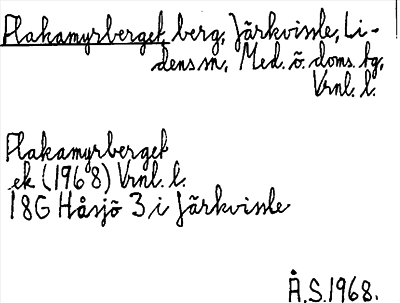 Plakamyrberget, berg, Järkvissle, Li-
dens sn, Med. ö. doms. bg,
Vrnl. l.
Plakamyrberget
ek (1968) Vrnl. l.
18G Håsjö 3 i Järkvissle
Å.S. 1968.